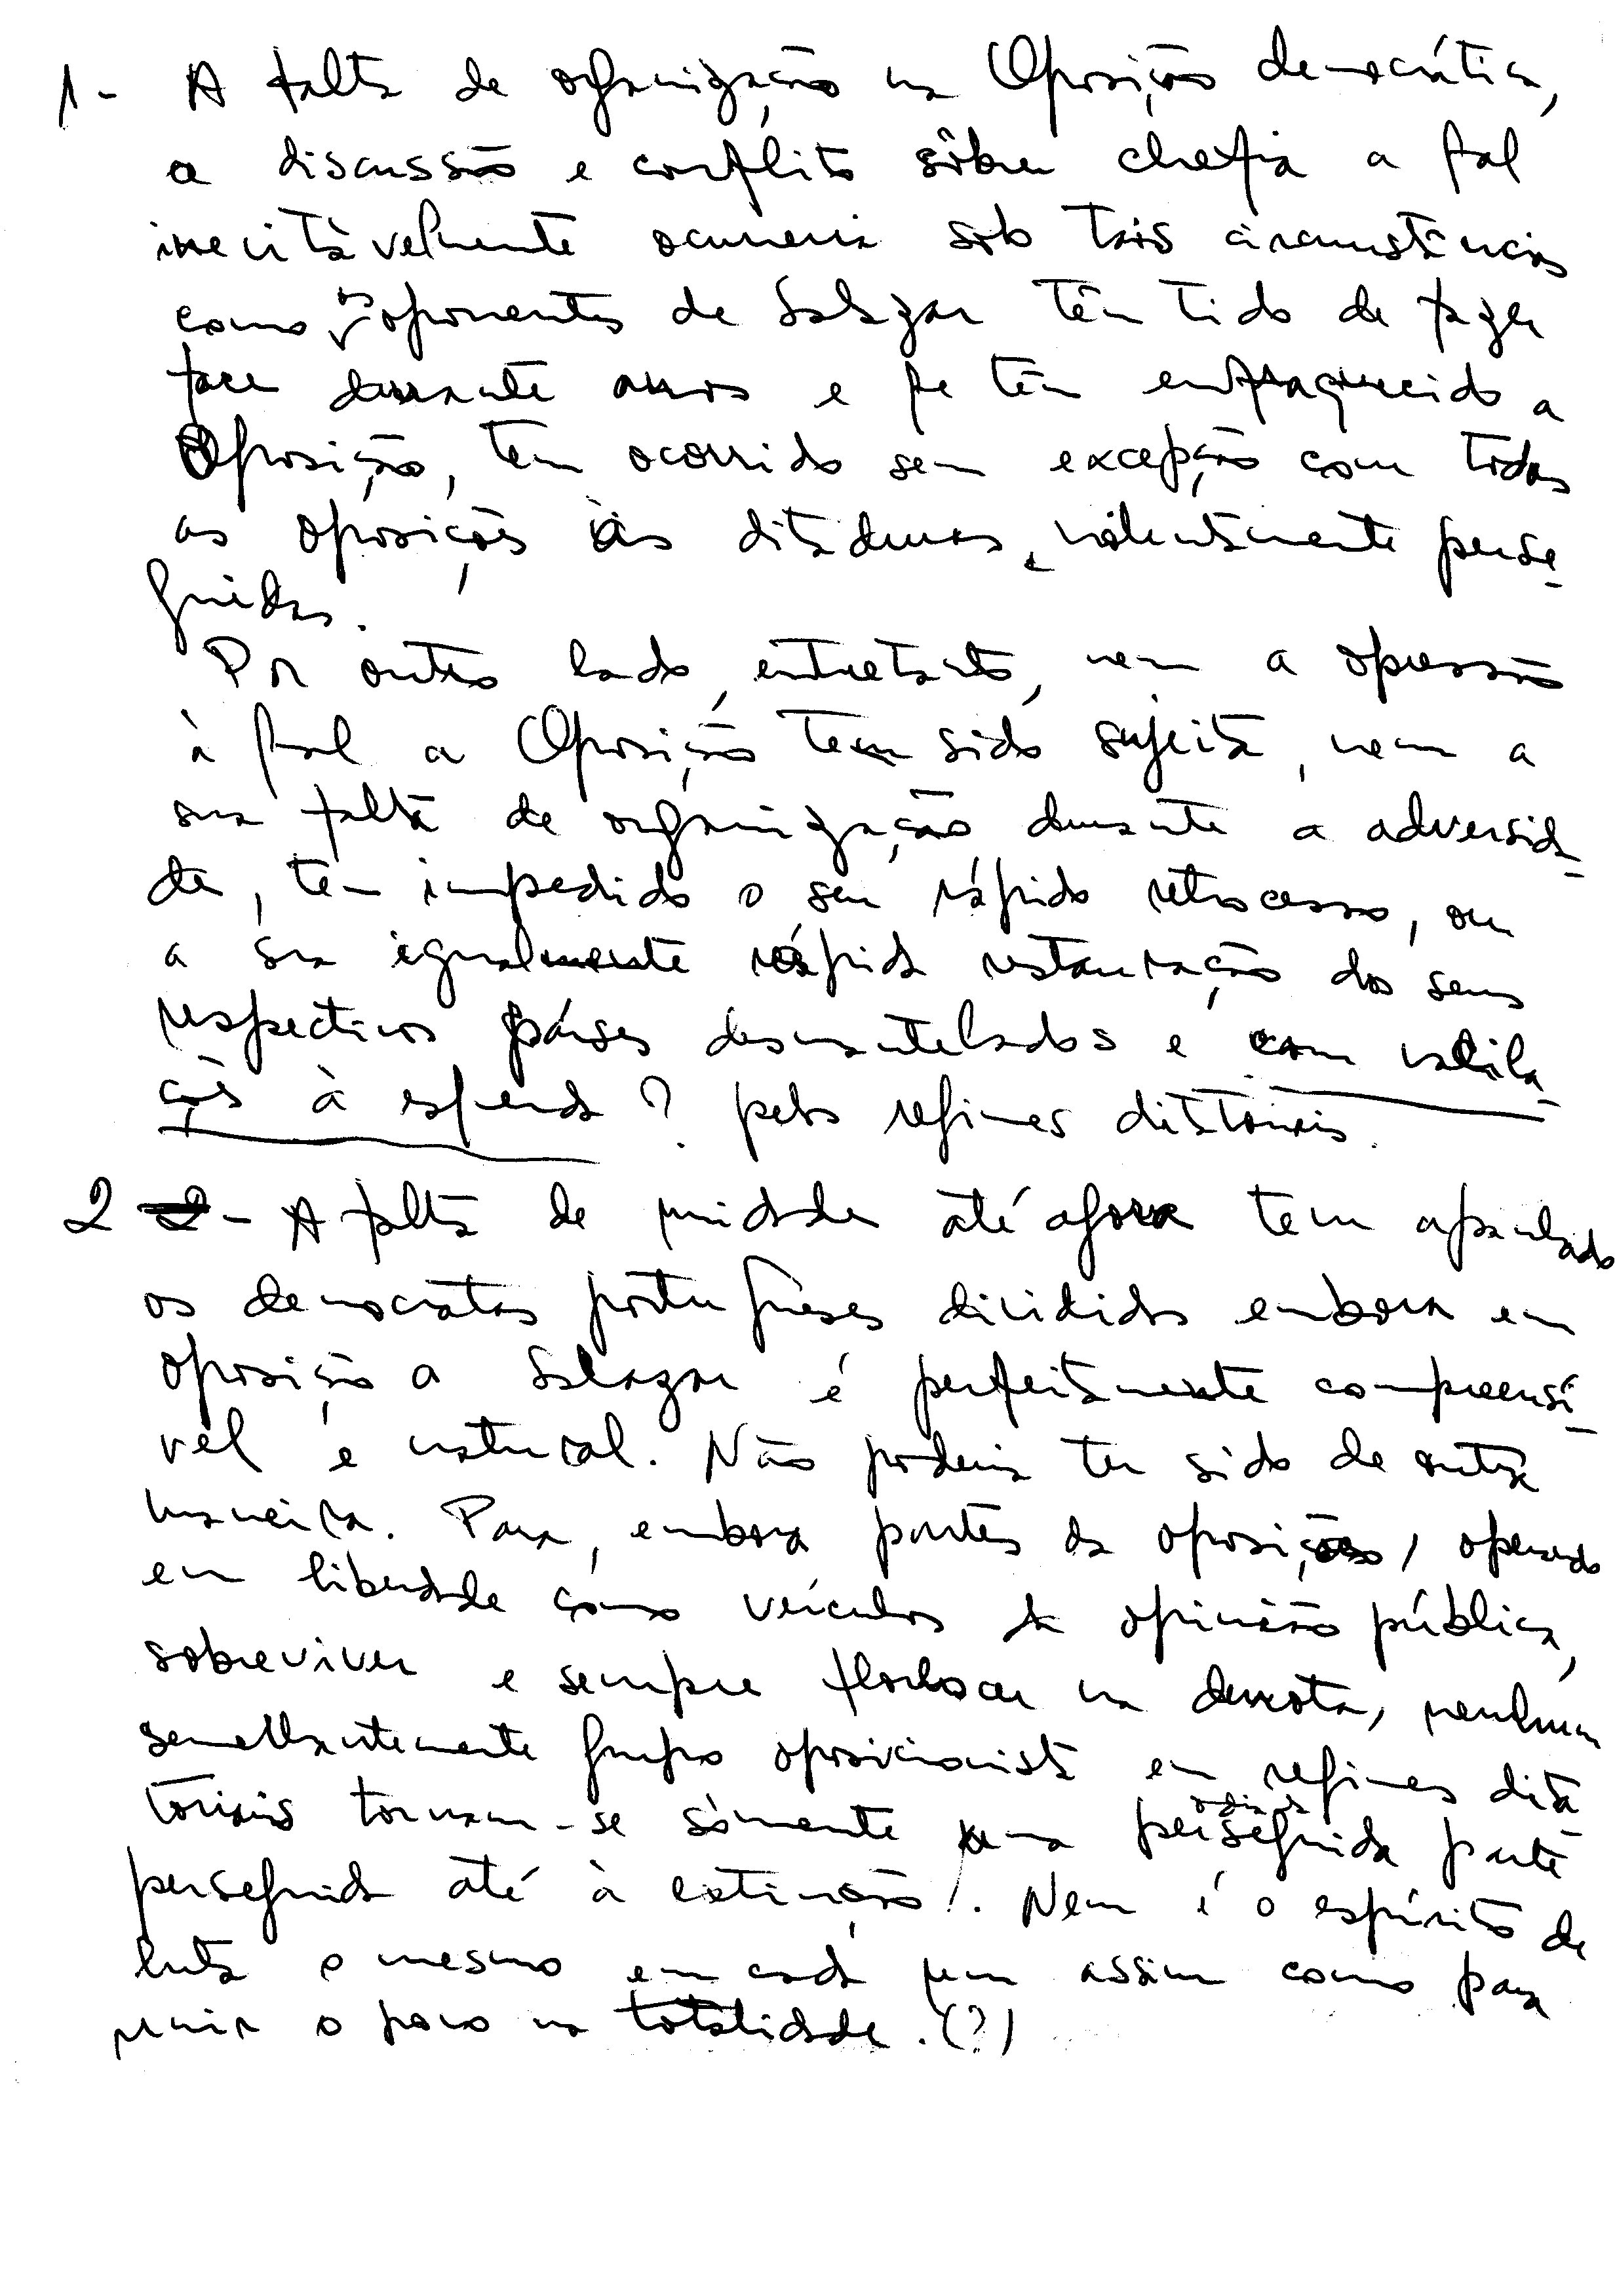 1- A falta de organização na Oposição democrática,
a discussão e conflito sôbre chefia a qual
inevitàvelmente ocorreria sob tais circunstâncias
como os oponentes de Salazar têm tido de fazer
face durante anos e que têm enfraquecido a
Oposição, tem ocorrido sem excepção com todas
as oposições às ditaduras, violentamente perse-
guidas.
Por outro lado, entretanto, nem a opressão
à qual a Oposição tem sido sujeita, nem a
sua falta de organização durante a adversida-
de, têm impedido o seu rápido retrocesso, ou
a sua igualmente rápida restauração dos seus
respectivos países desmantelados e com vacila-
ções à esquerda? pelos regimes ditatoriais.
2 - A falta de unidade até agora tem
os democratas portugueses divididos embora em
oposição a Salazar é perfeitamente compreensí-
vel e natural. Não poderia ter sido de outra
maneira. Para, embora partes da oposição, operando
em liberdade como veículos da opinião pública,
sobreviver e sempre na derrota, nenhum
semelhantemente grupo oposicionista em regimes dita
toriais tornam-se sòmente uma odiada perseguida parte
perseguida até à extinção!. Nem é o espírito de
luta o mesmo em cada um assim como para
unir o povo na totalidade.(?)